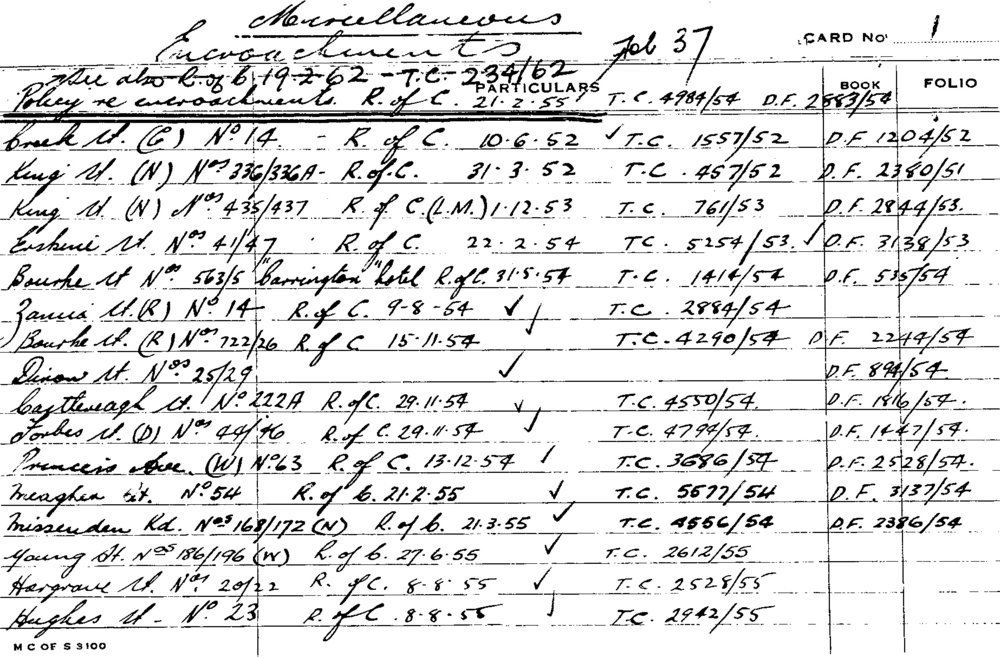 Miscellaneous
Encroachments Feb 37 CARD No. 1
See also R. of C. 19-2-62 - T.C. 234/62
PARTICULARS BOOK FOLIO
Policy re encroachments. R. of C. 21.2.55 T.C. 4984/54 D.F. 2883/54
Creek St. (G) No 14. - R. of C. 10.6.52 ✓ T.C. 1557/52 D.F 1204/52
King St. (N) Nos 336/336A - R. of C. 31.3.52 T.C. 457/52 D.F. 2380/51
King St (N) Nos 435/437 R. of C. (L.M.) 1.12.53 T.C. 761/53 D.F. 2844/53.
Erskine St. Nos 41/47 R. of C. 22.2.54 T.C. 5254/53. ✓ D.F. 3138/53
Bourke St Nos 563/5 "Carrington" hotel R. of C. 31.5.54 T.C. 1414/54 D.F. 535/54
Zamia St. (R) No 14 R. of C. 9-8-54 ✓ T.C. 2884/54
Bourke St. (R) Nos 722/26 R. of C 15.11.54 ✓ T.C. 4290/54 D.F. 2244/54
Dixon St. Nos 25/29 ✓ D.F. 894/54.
Castlereagh St. No 222A R. of C. 29.11.54 ✓ T.C. 4550/54. D.F. 1816/54.
Forbes St. (D) Nos 44/46 R. of C. 29.11.54 ✓ T.C. 4794/54. D.F. 1447/54.
Princess Ave. (W) No 63 R. of C. 13-12-54 ✓ T.C. 3686/54 D.F. 2528/54.
Meagher St. No 54 R. of C. 21.2.55 ✓ T.C. 5677/54 D.F. 3137/54
Missenden Rd. Nos 168/172 (N) R. of C. 21.3.55 ✓ T.C. 4556/54 D.F. 2386/54
Young St. Nos 186/196 (W) R. of C. 27.6.55 ✓ T.C. 2612/55
Hargrave St. Nos 20/22 R. of C. 8.8.55 ✓ T.C. 2528/55
Hughes St - No 23 R. of C. 8.8.55 ✓ T.C. 2942/55
M C OF S 3100